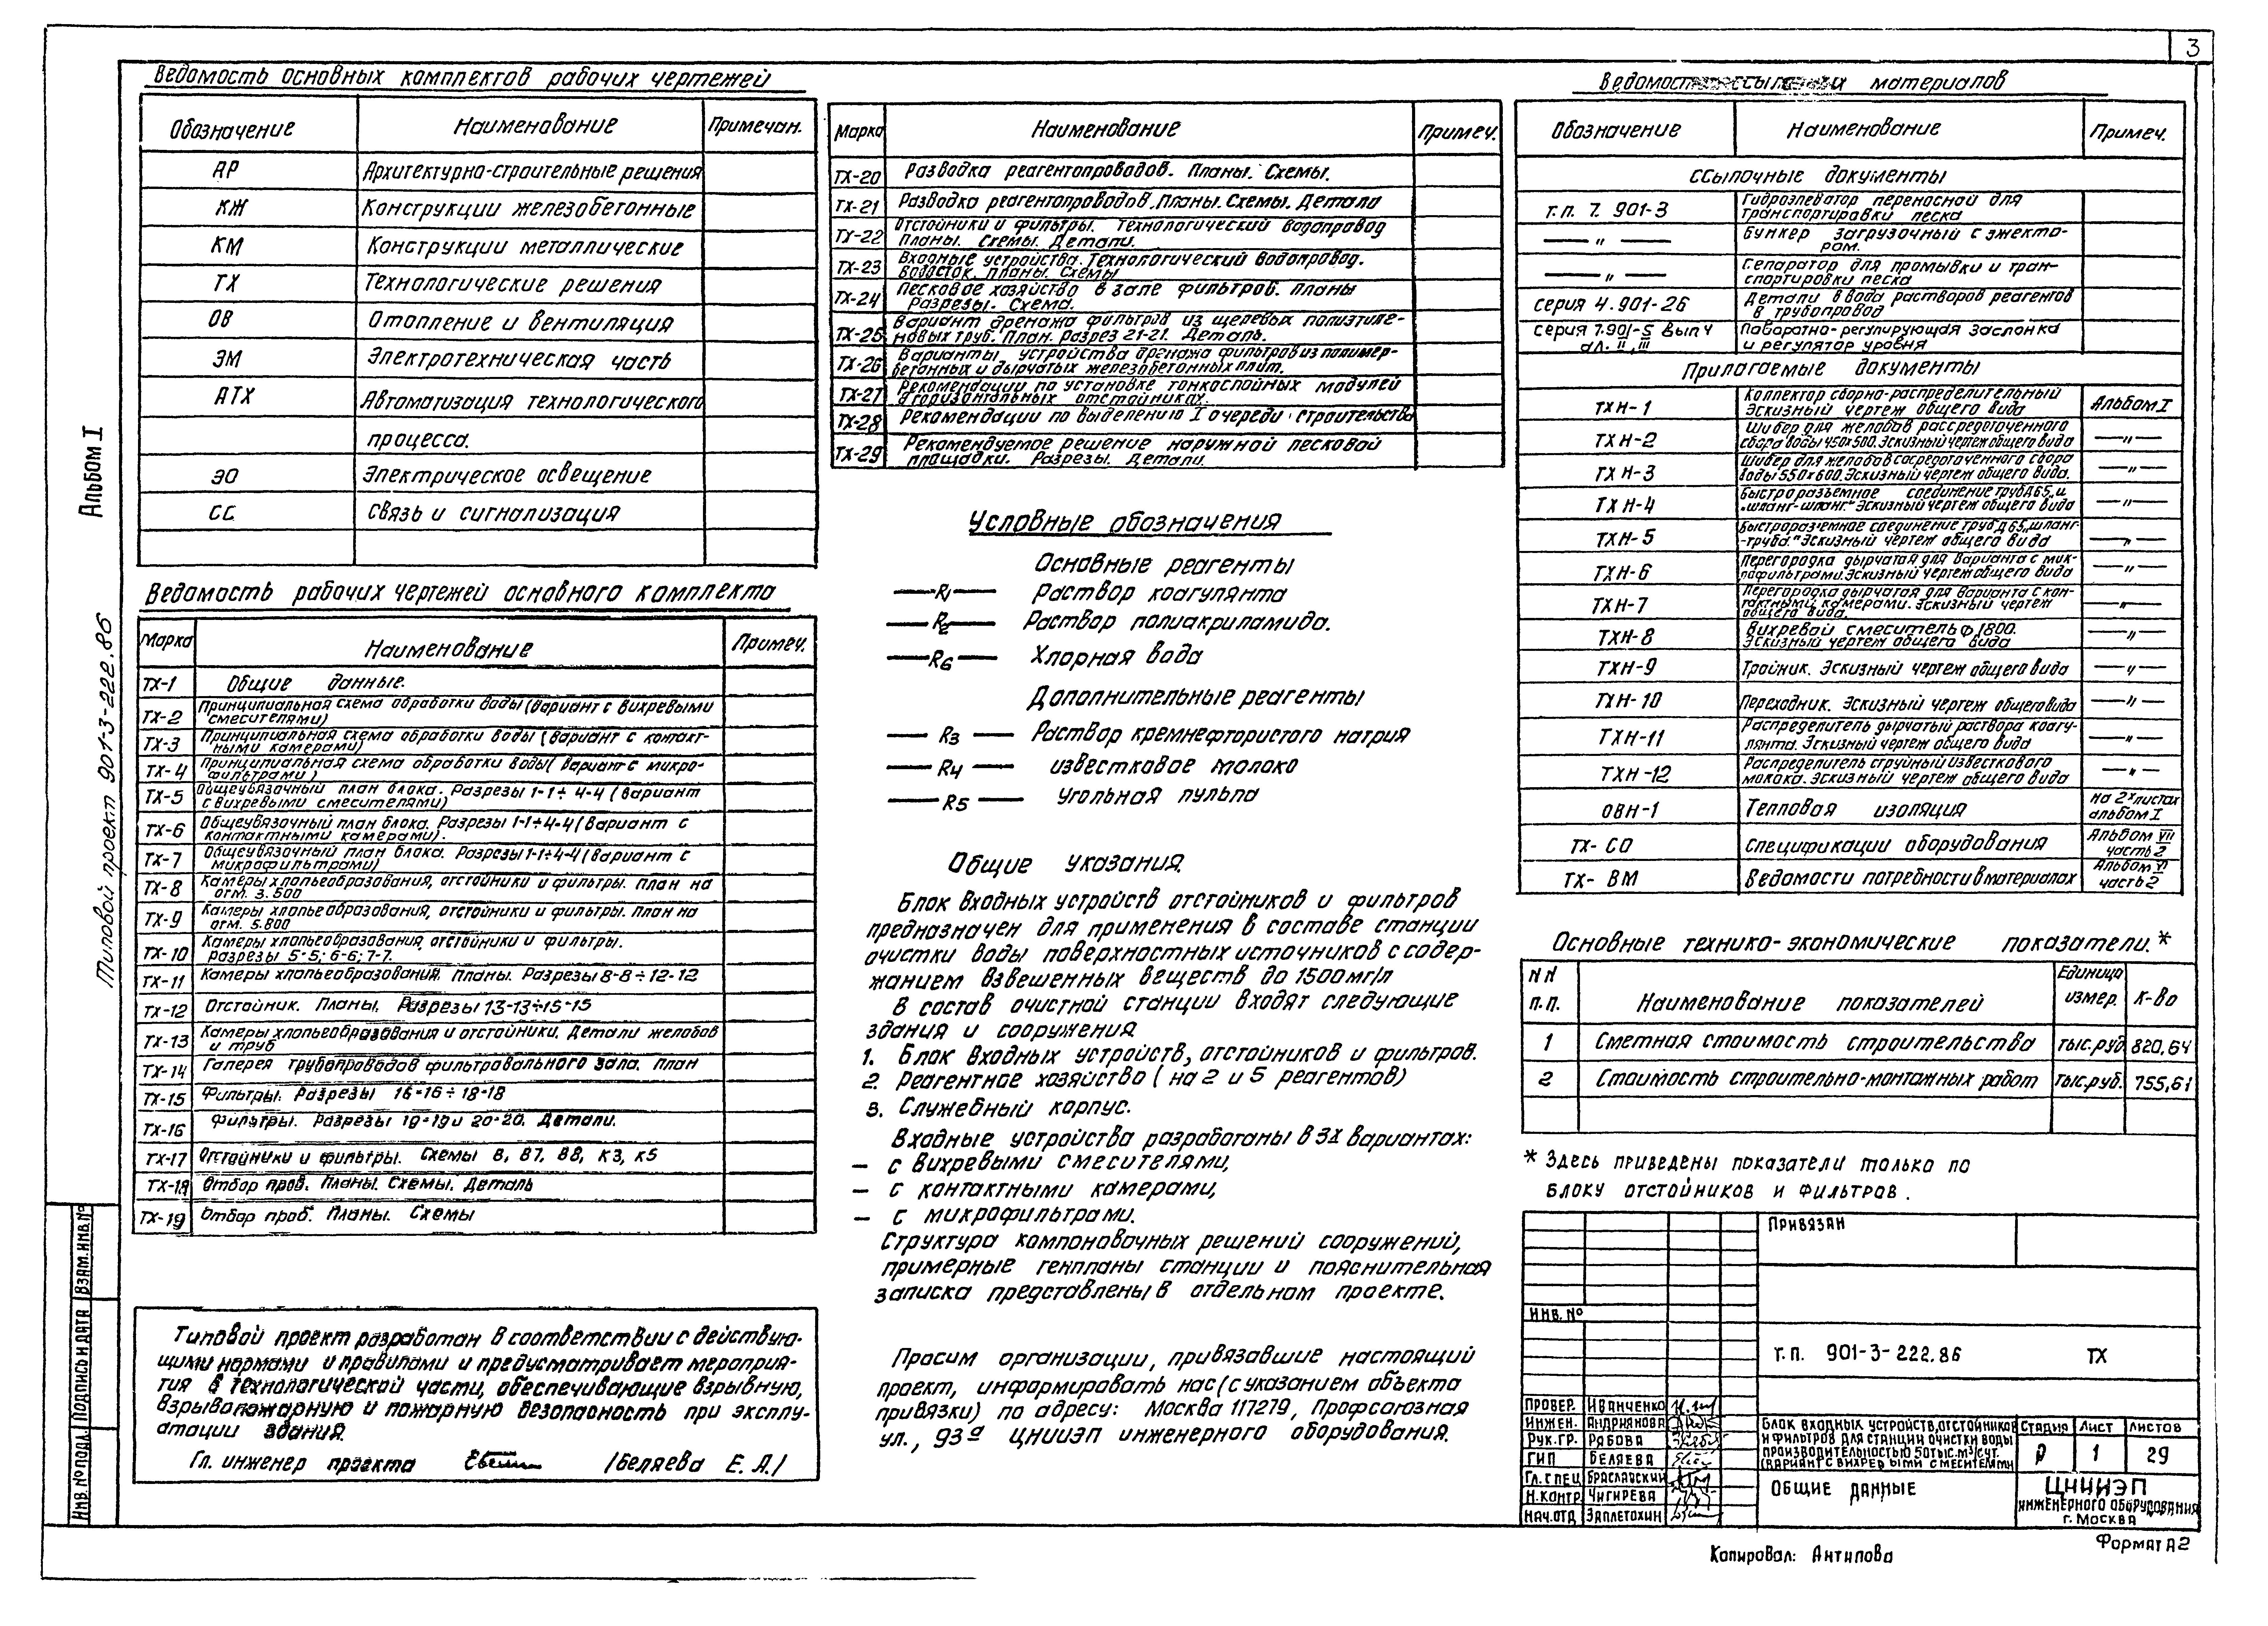 3
Ведомость основных комплектов рабочих чертежей
Обозначение Наименование Примечан.
АР Архитектурно-строительные решения
КЖ Конструкции железобетонные
КМ Конструкции металлические
ТХ Технологические решения
ОВ Отопление и вентиляция
ЭМ Электротехническая часть
АТХ Автоматизация технологического
процесса.
ЭО Электрическое освещение
СС Связь и сигнализация
Ведомость рабочих чертежей основного комплекта
Марка Наименование Примеч.
ТХ-1 Общие данные.
ТХ-2 Принципиальная схема обработки воды (вариант с вихревыми
смесителями)
ТХ-3 Принципиальная схема обработки воды (вариант с контакт-
ными камерами)
ТХ-4 Принципиальная схема обработки воды (вариант с микро-
фильтрами)
ТХ-5 Общеувязочный план блока. Разрезы 1-1÷4-4 (вариант
с вихревыми смесителями)
ТХ-6 Общеувязочный план блока. Разрезы 1-1÷4-4 (вариант с
контактными камерами).
ТХ-7 Общеувязочный план блока. Разрезы 1-1÷4-4 (вариант с
микрофильтрами)
ТХ-8 Камеры хлопьеобразования, отстойники и фильтры. План на
отм. 3.500
ТХ-9 Камеры хлопьеобразования, отстойники и фильтры. План на
отм. 5.800
ТХ-10 Камеры хлопьеобразования, отстойники и фильтры.
Разрезы 5-5; 6-6; 7-7.
ТХ-11 Камеры хлопьеобразования. Планы. Разрезы 8-8÷12-12
ТХ-12 Отстойник. Планы. Разрезы 13-13÷15-15
ТХ-13 Камеры хлопьеобразования и отстойники. Детали желобов
и труб
ТХ-14 Галерея трубопроводов фильтровального зала. План
ТХ-15 Фильтры. Разрезы 16-16÷18-18
ТХ-16 Фильтры. Разрезы 19-19 и 20-20. Детали.
ТХ-17 Отстойники и фильтры. Схемы В, В7, В8, К3, К5
ТХ-18 Отбор проб. Планы. Схемы. Деталь
ТХ-19 Отбор проб. Планы. Схемы
Типовой проект разработан в соответствии с действую-
щими нормами и правилами и предусматривает мероприя-
тия в технологической части, обеспечивающие взрывную,
взрывопожарную и пожарную безопасность при эксплу-
атации здания.
Гл. инженер проекта /Беляева Е. А./
Марка Наименование Примеч.
ТХ-20 Разводка реагентопроводов. Планы. Схемы.
ТХ-21 Разводка реагентопроводов. Планы. Схемы. Детали
ТХ-22 Отстойники и фильтры. Технологический водопровод
Планы. Схемы. Детали.
ТХ-23 Входные устройства. Технологический водопровод.
Водосток. Планы. Схемы
ТХ-24 Песковое хозяйство в зале фильтров. Планы
Разрезы. Схема.
ТХ-25 Вариант дренажа фильтров из щелевых полиэтиле-
новых труб. План. Разрез 21-21. Деталь.
ТХ-26 Варианты устройства дренажа фильтров из полимер-
бетонных и дырчатых железобетонных плит.
ТХ-27 Рекомендации по установке тонкослойных модулей
в горизонтальных отстойниках.
ТХ-28 Рекомендации по выделению I очереди строительства
ТХ-29 Рекомендуемое решение наружной песковой
площадки. Разрезы. Детали.
Условные обозначения
Основные реагенты
— R1 — Раствор коагулянта
— R2 — Раствор полиакриламида.
— R6 — Хлорная вода
Дополнительные реагенты
— R3 — Раствор кремнефтористого натрия
— R4 — известковое молоко
— R5 — угольная пульпа
Общие указания.
Блок входных устройств отстойников и фильтров
предназначен для применения в составе станции
очистки воды поверхностных источников с содер-
жанием взвешенных веществ до 1500мг/л
В состав очистной станции входят следующие
здания и сооружения
1. Блок входных устройств, отстойников и фильтров.
2. Реагентное хозяйство (на 2 и 5 реагентов)
3. Служебный корпус.
Входные устройства разработаны в 3х вариантах:
– с вихревыми смесителями,
– с контактными камерами,
– с микрофильтрами.
Структура компоновочных решений сооружений,
примерные генпланы станции и пояснительная
записка представлены в отдельном проекте.
Просим организации, привязавшие настоящий
проект, информировать нас (с указанием объекта
привязки) по адресу: Москва 117279, Профсоюзная
ул., 93а ЦНИИЭП инженерного оборудования.
Ведомость ссылочных материалов
Обозначение Наименование Примеч.
Ссылочные документы
т.п. 7. 901-3 Гидроэлеватор переносной для
транспортировки песка
— " — Бункер загрузочный с эжекто-
ром.
— " — Сепаратор для промывки и тран-
спортировки песка
серия 4.901-26 Детали ввода растворов реагентов
в трубопровод
серия 7.901-5 вып 4
ал. II, III
Поворотно-регулирующая заслонка
и регулятор уровня
Прилагаемые документы
ТХН-1 Коллектор сборно-распределительный
Эскизный чертеж общего вида Альбом I
ТХН-2 Шибер для желобов рассредоточенного
сбора воды 450х500. Эскизный чертеж общего вида — " —
ТХН-3 Шибер для желобов сосредоточенного сбора
воды 550х600. Эскизный чертеж общего вида. — " —
ТХН-4 Быстроразъемное соединение труб Д65, и
"шланг-шланг." Эскизный чертеж общего вида — " —
ТХН-5 Быстроразъемное соединение труб Д65, "шланг-
-труба." Эскизный чертеж общего вида — " —
ТХН-6 Перегородка дырчатая для варианта с мик-
рофильтрами. Эскизный чертеж общего вида — " —
ТХН-7 Перегородка дырчатая для варианта с кон-
тактными камерами. Эскизный чертеж
общего вида. — " —
ТХН-8 Вихревой смеситель Ф 1800.
Эскизный чертеж общего вида — " —
ТХН-9 Тройник. Эскизный чертеж общего вида — " —
ТХН-10 Переходник. Эскизный чертеж общего вида — " —
ТХН-11 Распределитель дырчатый раствора коагу-
лянта. Эскизный чертеж общего вида — " —
ТХН-12 Распределитель струйный известкового
молока. Эскизный чертеж общего вида — " —
ОВН-1 Тепловая изоляция на 2х листах
альбом I
ТХ-СО Спецификации оборудования Альбом VII
часть 2
ТХ-ВМ Ведомости потребности в материалах Альбом VI
часть 2
Основные технико-экономические показатели.*
NN
п.п. Наименование показателей Единица
измер. К-во
1 Сметная стоимость строительства тыс.руд 820,64
2 Стоимость строительно-монтажных работ тыс.руб. 755,61
* Здесь приведены показатели только по
блоку отстойников и фильтров.
Привязан
Инв.№
т.п. 901-3-222.86 ТХ
Провер. Иванченко
Инжен. Андриянова
Рук.гр. Рябова
ГИП Беляева
Гл.спец Браславский
Н.контр. Чигирева
Нач.отд Заплетохин
Блок входных устройств, отстойников
и фильтров для станции очистки воды
производительностью 50тыс.м³/сут.
(вариант с вихревыми смесителями
Стадия Лист Листов
Р 1 29
Общие данные
ЦНИИЭП
инженерного оборудования
г. Москва
Копировал: Антипова
Формат А2
Альбом I
Типовой проект 901-3-222.86
Взам.инв.№
Подпись и дата
Инв.№ подл.